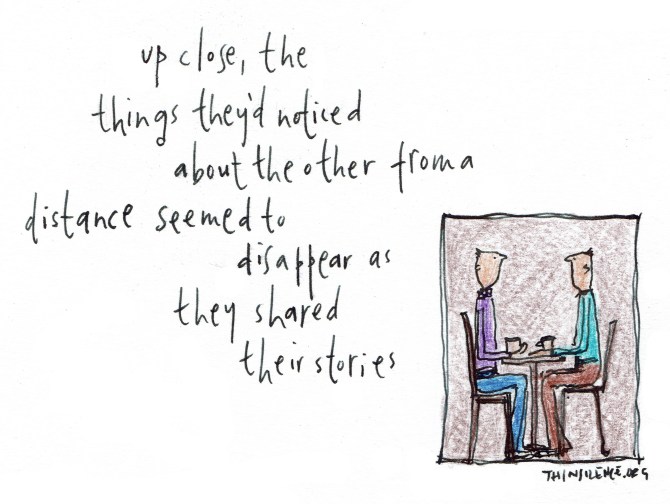 up close, the
things they'd noticed
about the other from a
distance seemed to
disappear as
they shared
their stories
THINSILENCE.ORG